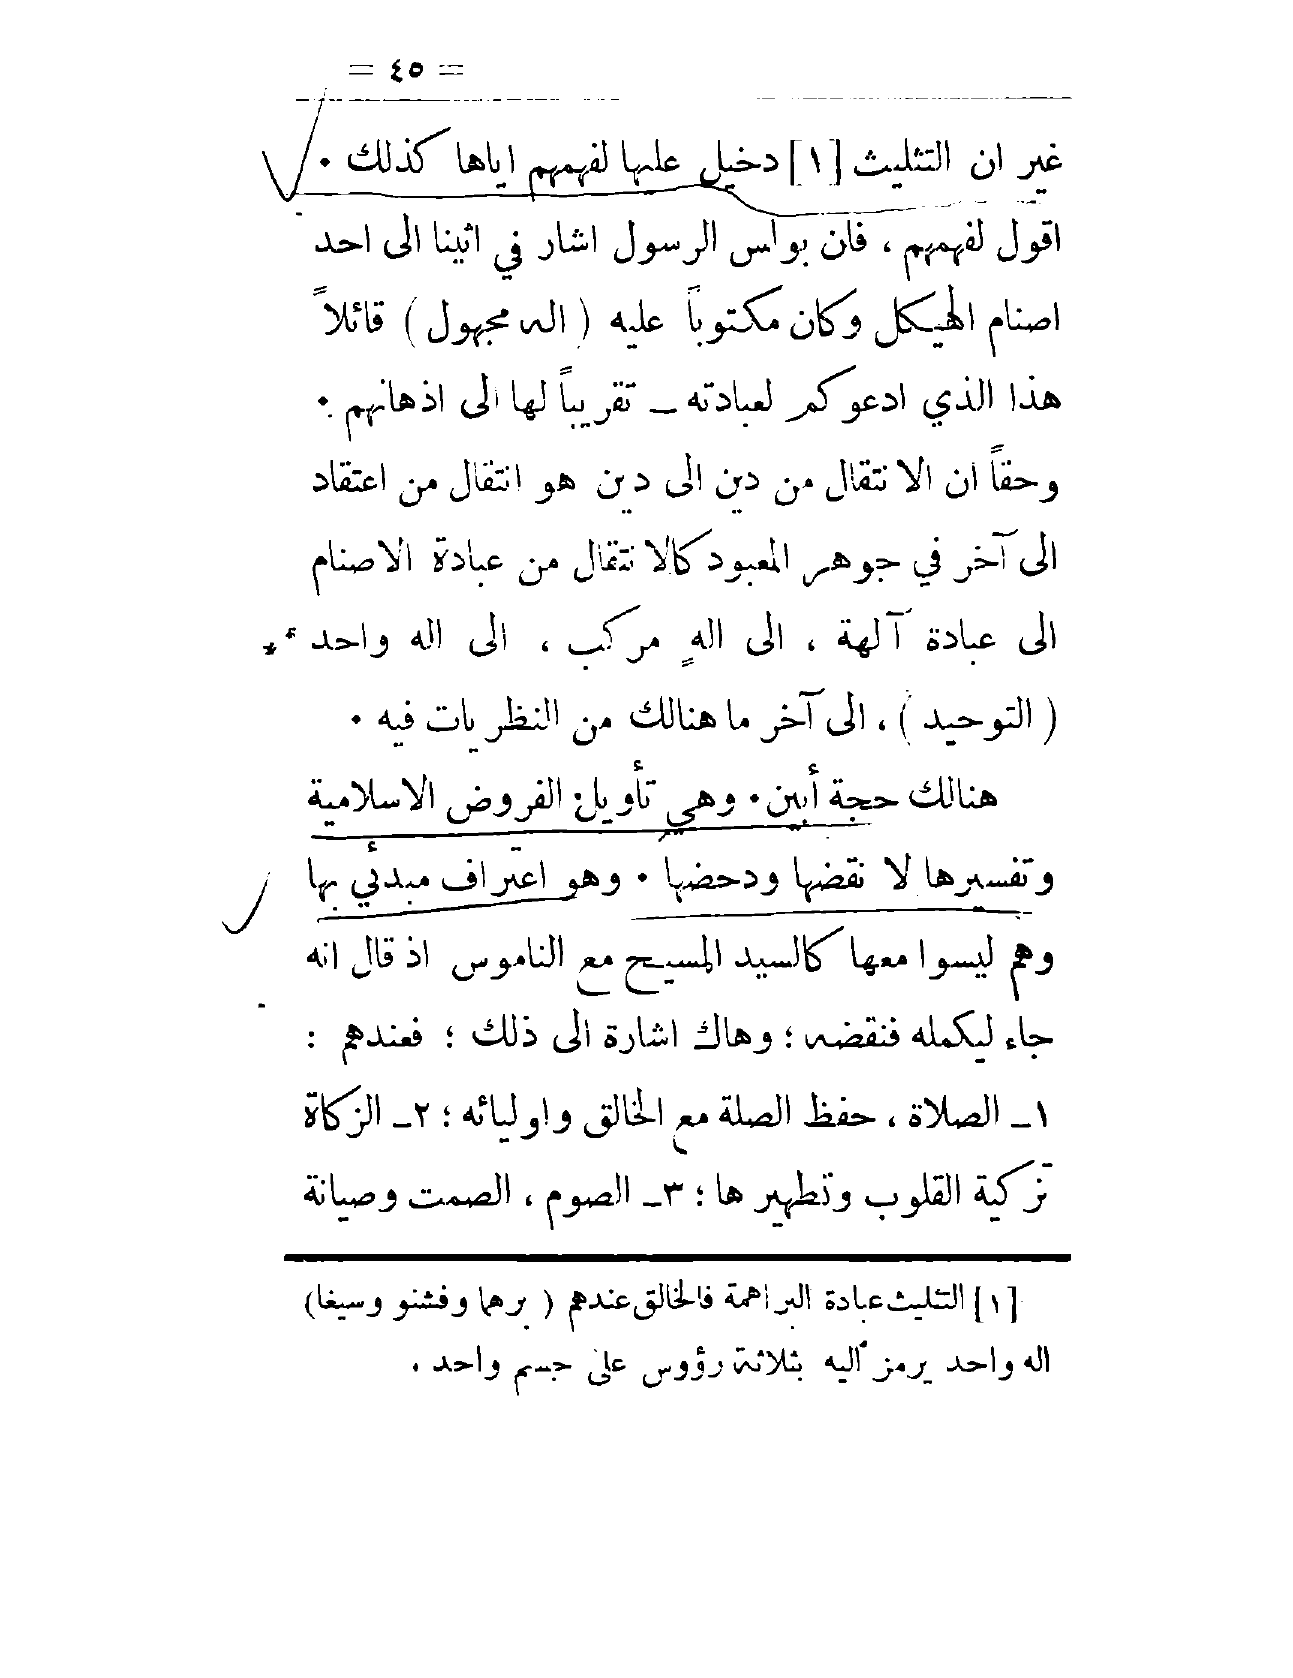 = ٤٥ =
غير ان التثليث [١] دخيل عليها لفهمهم اياها كذلك .
اقول لفهمهم ، فان بولس الرسول اشار في اثينا الى احد
اصنام الهيكل وكان مكتوباً عليه ( اله مجهول ) قائلاً
هذا الذي ادعوكم لعبادته ـ تقريباً لها الى اذهانهم .
وحقاً ان الانتقال من دين الى دين هو انتقال من اعتقاد
الى آخر في جوهر المعبود كالانتقال من عبادة الاصنام
الى عبادة آلهة ، الى الهٍ مركب ، الى اله واحد
( التوحيد ) ، الى آخر ما هنالك من النظريات فيه .
هنالك حجة أبين . وهي تأويل الفروض الاسلامية
وتفسيرها لا نقضها ودحضها . وهو اعتراف مبدئي بها
وهم ليسوا معها كالسيد المسيح مع الناموس اذ قال انه
جاء ليكمله فنقضه ؛ وهاك اشارة الى ذلك ؛ فعندهم :
١ـ الصلاة ، حفظ الصلة مع الخالق واوليائه ؛ ٢ـ الزكاة
تزكية القلوب وتطهيرها ؛ ٣ـ الصوم ، الصمت وصيانة
[١] التثليث عبادة البراهمة فالخالق عندهم ( برهما وفشنو وسيفا )
اله واحد يرمز اليه بثلاثة رؤوس على جسم واحد .